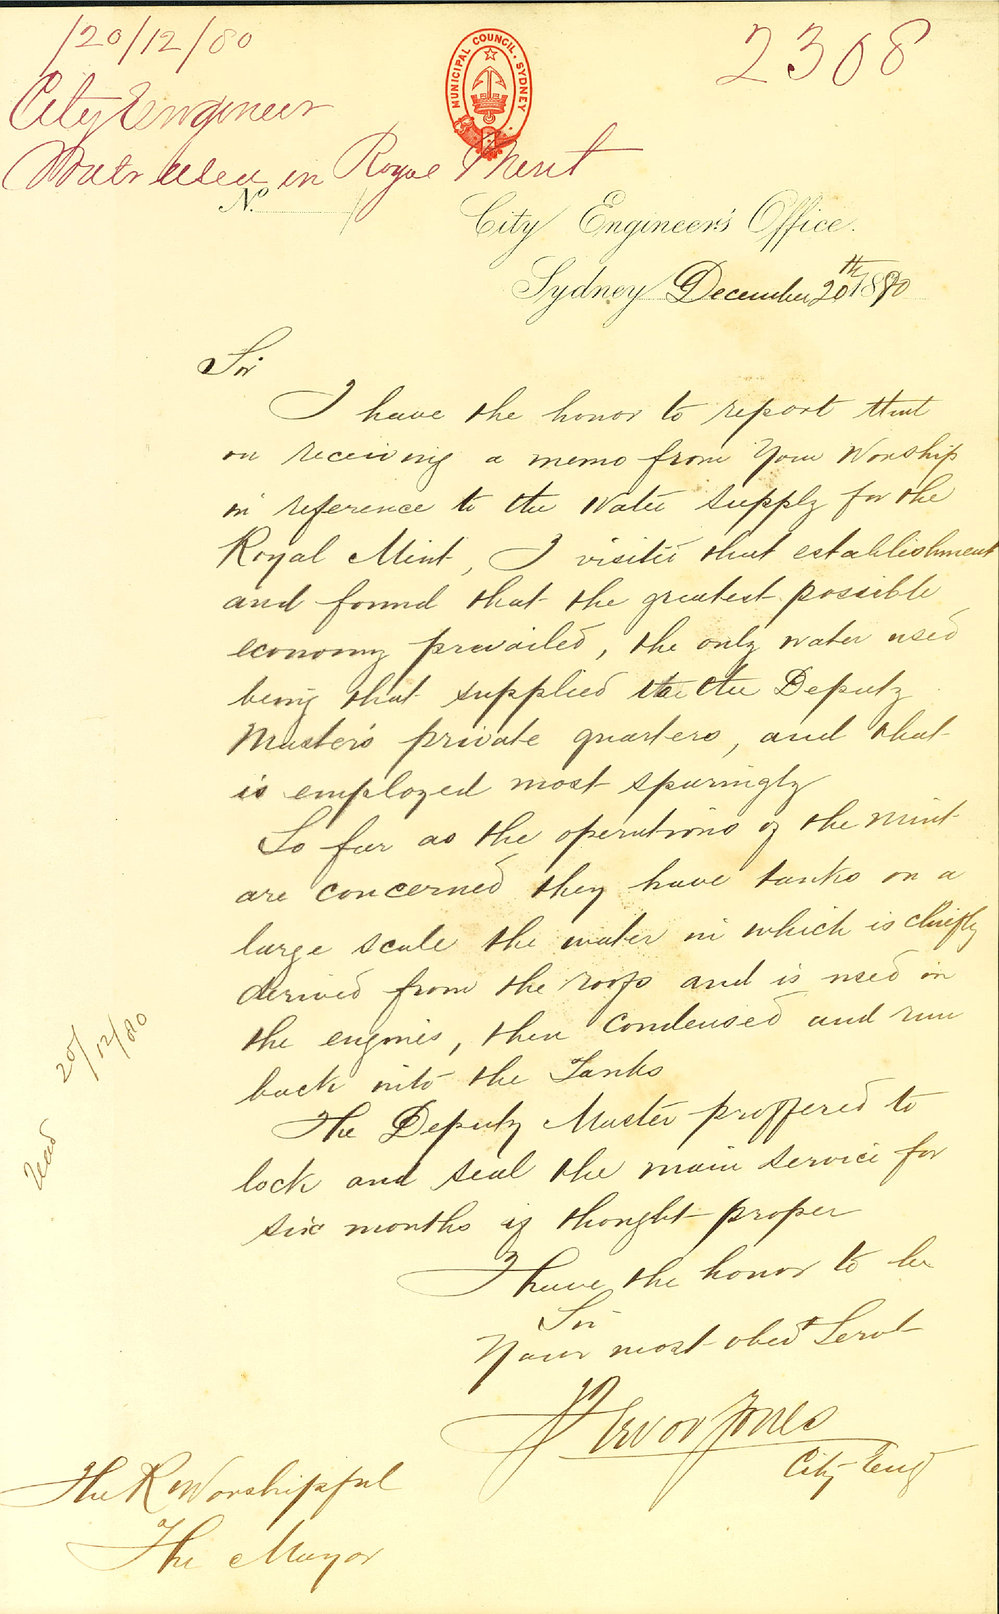 /20/12/80
2308
City Engineer
Water used in Royal Mint
MUNICIPAL COUNCIL. SYDNEY
No.
City Engineer's Office.
Sydney December 20th 1880
Sir
I have the honor to report that
on receiving a memo from Your Worship
in reference to the Water supply for the
Royal Mint, I visited that establishment
and found that the greatest possible
economy prevailed, the only water used
being that supplied to the Deputy
Master's private quarters, and that
is employed most sparingly
So far as the operations of the mint
are concerned they have tanks on a
large scale the water in which is chiefly
derived from the roofs and is used in
the engines, then condensed and run
back into the Tanks
The Deputy Master proffered to
lock and seal the main service for
six months if thought proper
I have the honor to be
Sir
Your most obedt Servt
Trevor Jones
City Eng
The R Worshipful
The Mayor
Read 20/12/80